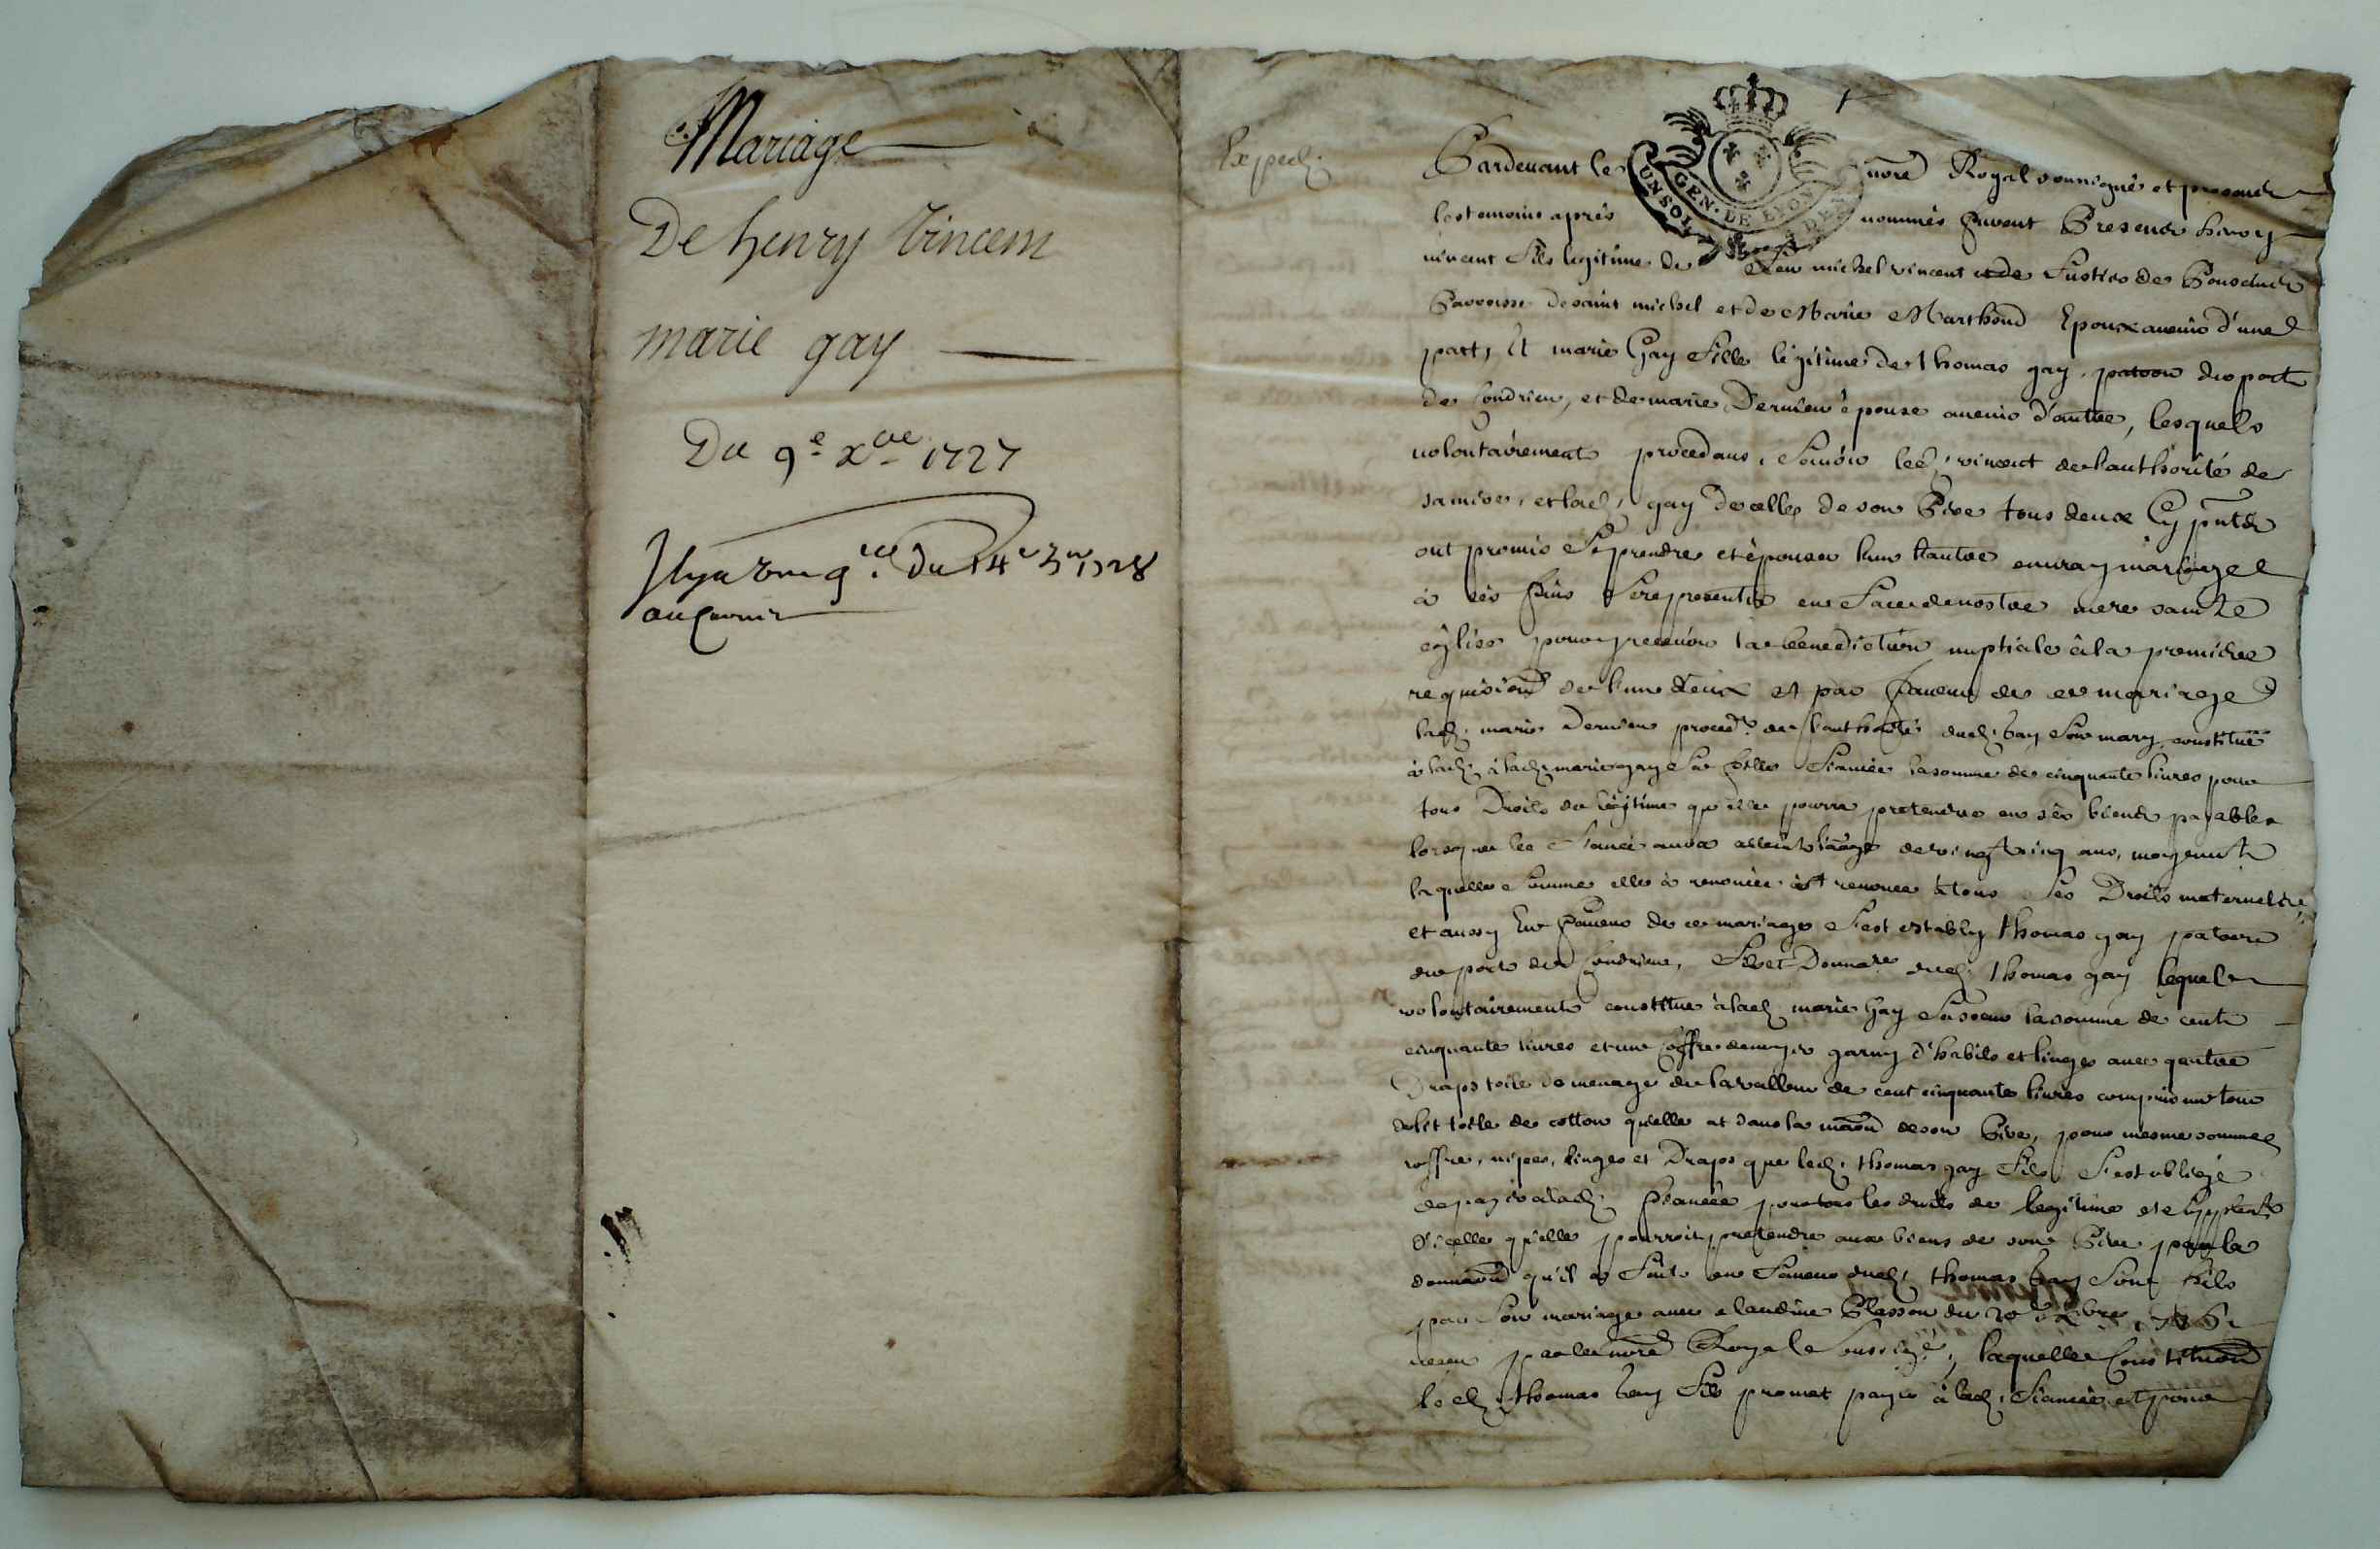 Mariage
De henry Vincem
marie gay
Du 9e xbre 1727
Il y a du 14e 1728
Exped.
GEN. DE LYON
UN SOL
Pardevant le nore Royal soussigné et presents
les temoins aprés nommés furent Presents henry
vincent fils legitime de feu michel vincent de
Parroisse de saint michel et de Marie Marthoud Epoux avenir d'une
part, Et marie Gay fille légitime de thomas gay patron du port
de Condrieu, et de marie Dervieu épouse avenir d'autre, lesquels
volontairement procedans, sçavoir led. vincent de l'authorité de
sa mere, et lad. gay de celle de son Pere tous deux Cy pnts
ont promis se prendre et épouser l'un l'autre en vray mariage
à ces fins se representer en face de nostre mere sainte
église pour recevoir la benediction nuptiale à la premiere
requisiôn de l'un d'eux et par faveur de ce marriage
lad. marie Dervieu proced. de l'authorité dud. Gay son mary, constitue
à lad. à lad. marie gay sa fille fiancée la somme de cinquante livres pour
tous Droits de légitime qu'elle pourra pretendre en ses biens payable
lorsque le fiancé aura atteint l'aage de vingt cinq ans, moyennt
laquelle somme elle à renoncée et renonce à tous ses Droits maternels
et aussy En faveur de ce mariage s'est estably thomas gay patron
du port de Condrieu, fils et Donnare dud. thomas gay lequel
volontairement constitue à lad. marie Gay sa soeur la somme de cent
cinquante livres et un coffre de noyer garny d'habits et linges avec quatre
Draps toile de menage de la valleur de cent cinquante livres compris un tour
de lit toile de cotton qu'elle at dans la maôn de son Pere, pour mesme somme
coffre, nipes, linges et Draps que led. thomas gay fils s'est obligé
de payer à lad. fiancée pour tous les droits de legitime et supplemt
d'icelle qu'elle pourroit pretendre aux biens de son Pere par la
donnaôn qu'il a faite en faveur dud. thomas Gay son fils
par son mariage avec claudine Plasson du 20
receu par le nore Royal soussigné, laquelle Constituôn
led. thomas Gay fils promet payer à lad. fiancée et pour